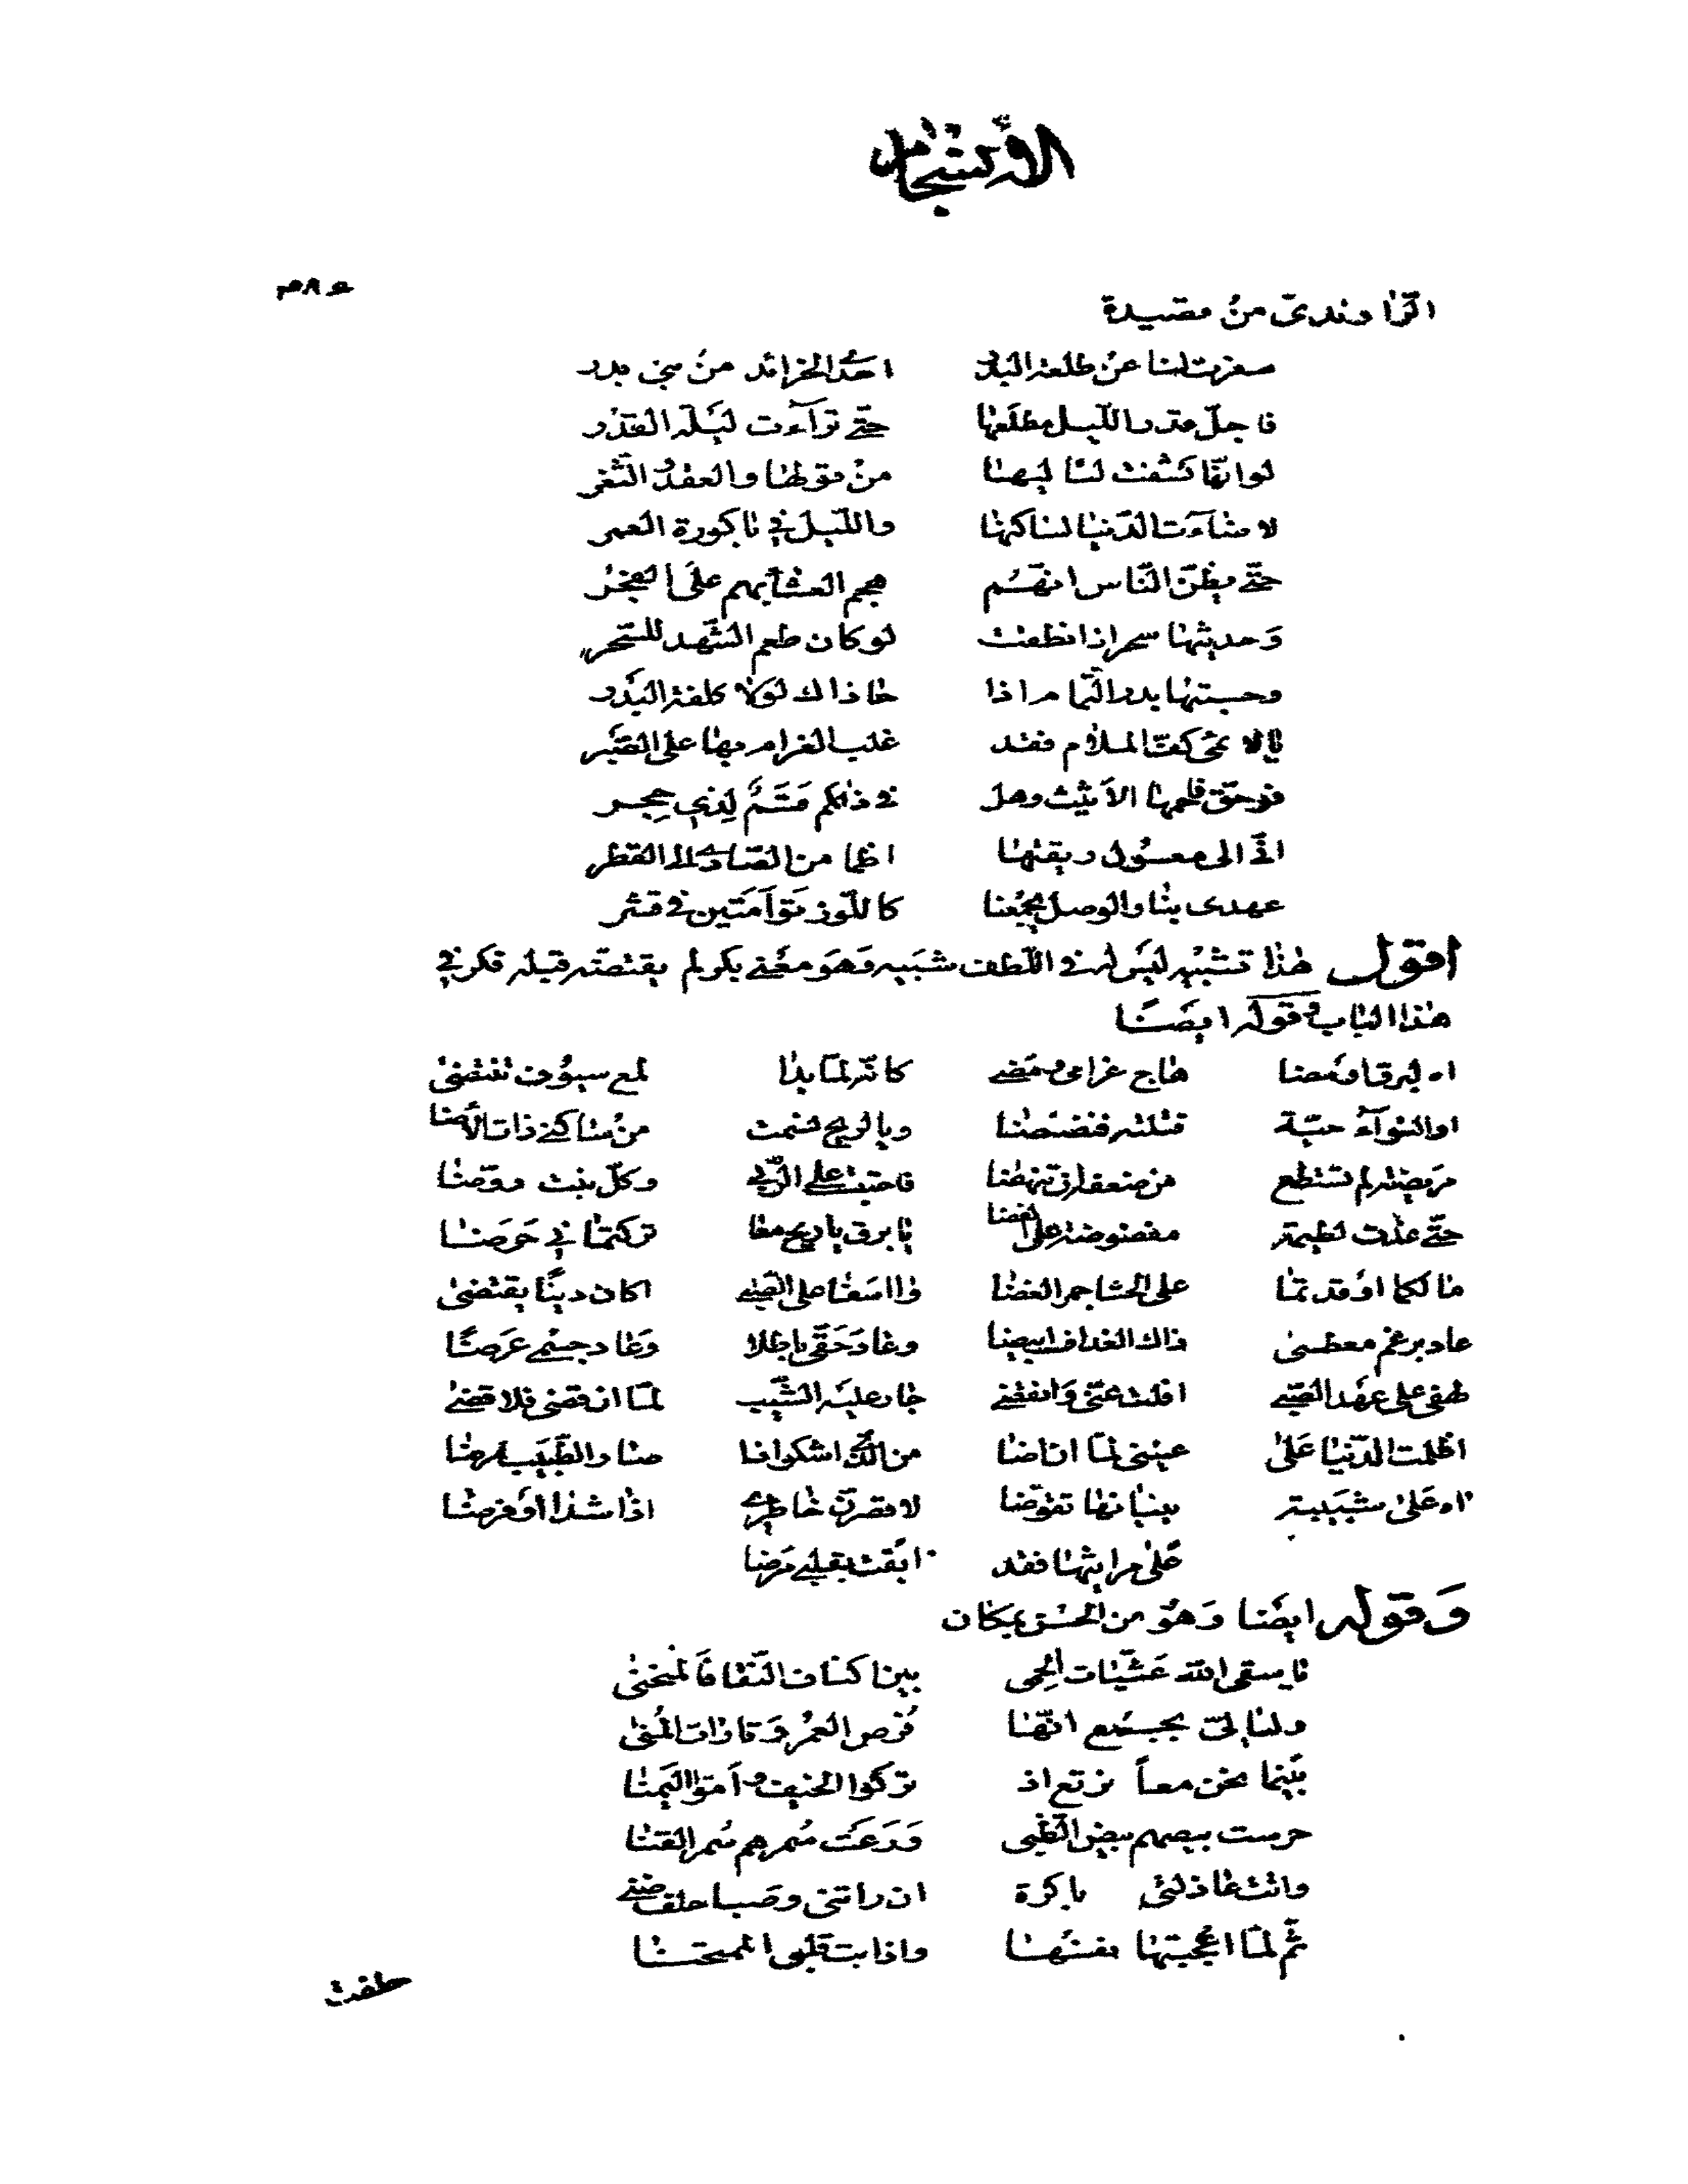 الأنسجام
الراوندي من قصيدة
سفرت لنا عن طلعة البدر احدى الخرائد من بني بدر
فاجل قدر الليل مطلعها حتى تراءت ليلة القدر
لو انها كشفت لنا ليهنا من قولها والعقد الثغر
لاضاءت الدنيا لساكنها والليل في باكورة العمر
حتى يظن الناس انهم هجم العشا بهم على الفجر
وحديثها سحر اذا نطقت لو كان طعم الشهد للسحر
وحسبتها بدر التمام اذا حاذاك لولا كلفة البدر
يا لائمي كف الملام فقد غلب الغرام بها على الصبر
فوحق فاحمها الاثيث وهل في ذلكم قسم لذي حجر
اني الى معسول ريقتها اظما من الصادي الى القطر
عهدى بنا والوصل يجمعنا كاللوز توأمتين في قشر
اقول هذا تشبيه ليس له في اللطف شبيه وهو معنى بكر لم يقتضه قبله فكر في
هذا الباب وقوله ايضا
اه لبرق اومضا هاج غرامي ومضى كانه لما بدا لمع سيوف تنتضى
او الشوآء حبة قتلته فنضنضا ويا لريح نسمت من ساكني ذات الأضا
مريضة لم تستطع من ضعفها ان تنهضا فاحيت على الربى وكل نبت روضا
حتى غدت لطيمة مفضوضة على الفضا يا برق يا ريح معا تركتما في حرضا
ما لكما اوقدتما على الحشا جمر الغضا وااسفا على الصبى اكان دينا يقتضى
عاد برغم معطسى ذاك الغداف ابيضا وعاد حقي باطلا وعاد جسمي عرضا
لهفى على عهد الصبى افلت عنى وانقضى جار عليه الشيب لما ان قضى فلا قضى
اظلمت الدنيا على عينى لما ان اضا من الذى اشكو اذا صنا والطبيب امرضا
اه على شبيبة بنيانها تقوضا لاقصرن خاطرى اذا شدا او قرضا
على مراثيها فقد ابقت بقلبي مرضا
وقوله ايضا وهو من الحسن بمكان
يا سقى الله عشيات الحمى بين اكناف النقا فالمنحنى
وليالى بجمع انها فرص العمر وتارات المنى
بينما نحن معا نرتع اذ تركوا الخيف وأموا اليمنا
حرست بيضهم بيض الظبى ورعت سمرهم سمر القنا
واتت عاذلتى باكرة ان راتنى وصبا حلف ضنى
ثم لما اعجبتها نفسها واذابت قلبى الممتحنا
حلفت